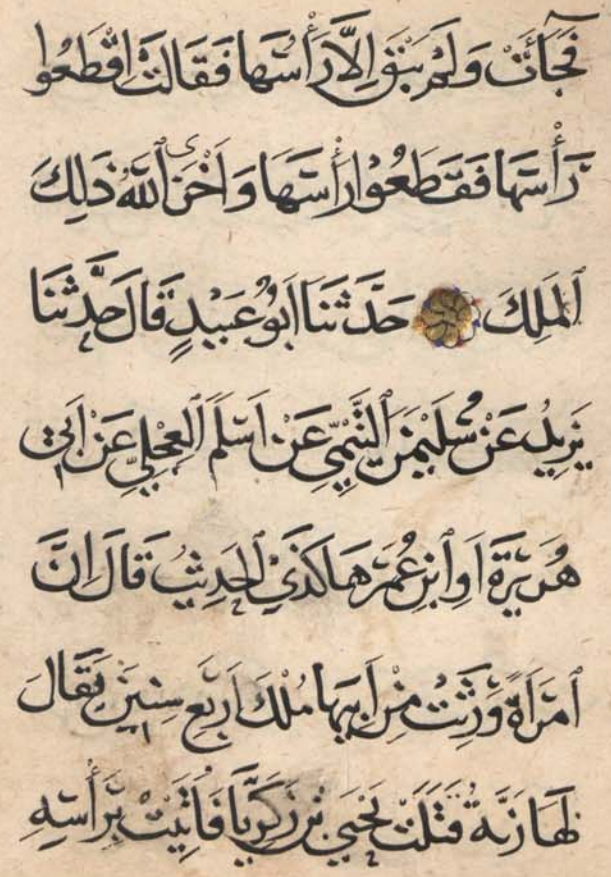 فَجَآءَتْ وَلَمْ يَبْقَ اِلَّا رَأْسُهَا فَقَالَتْ اِقْطَعُوا
رَأْسَهَا فَقَطَعُوْا رَأْسَهَا وَاَخْزَى اللّٰهُ ذَلِكَ
الْمَلِكَ حَدَّثَنَا اَبُو عُبَيْدٍ قَالَ حَدَّثَنَا
يَزِيْدُ عَنْ سُلَيْمٰنَ التَّيْمِيِّ عَنْ اَسْلَمَ الْعِجْلِيِّ عَنْ اَبِي
هُرَيْرَةَ اَوِ ابْنِ عُمَرَ هَكَذَى الْحَدِيْثُ قَالَ اِنَّ
امْرَاَةً وَرِثَتْ مِنْ اَبِيهَا مُلْكَ اَرْبَعِ سِنِيْنَ يُقَالَ
لَهَا رَبَّةُ قَتَلَتْ يَحْيَى بْنَ زَكَرِيَّا فَاُتِيَتْ بِرَأْسِهِ